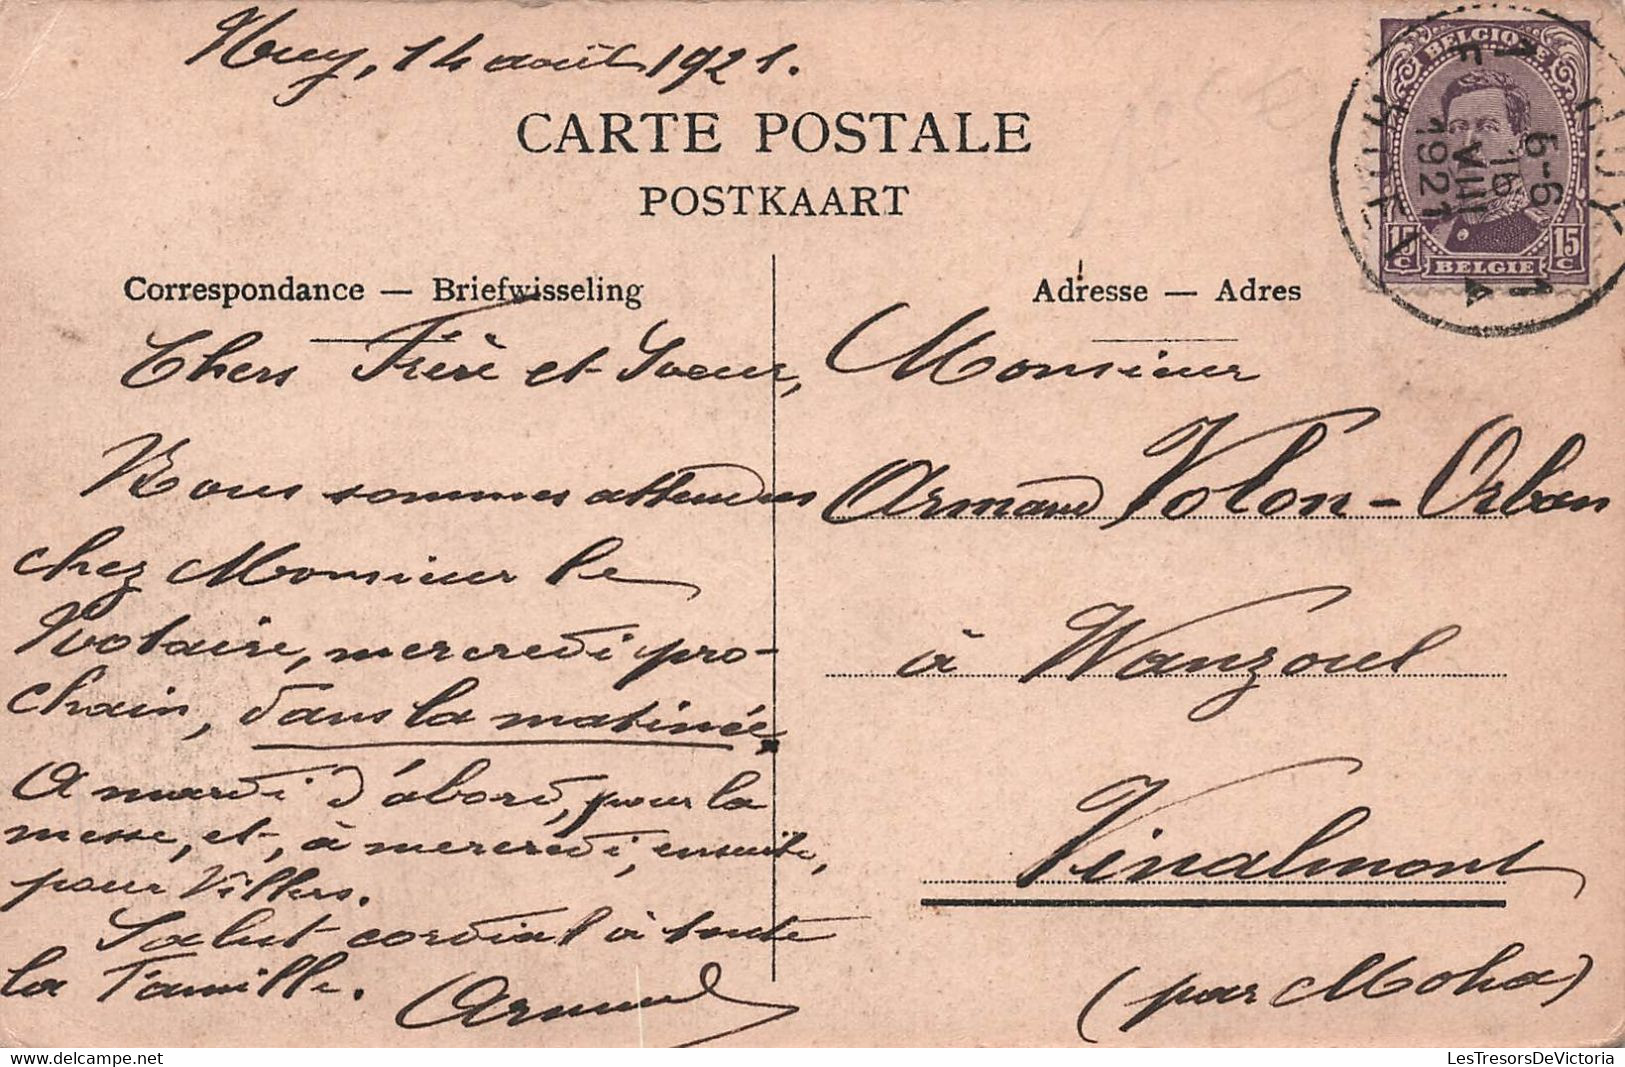 Huy, 14 août 1921.
CARTE POSTALE
POSTKAART
Correspondance — Briefwisseling
Chers Frère et Soeur,
Nous sommes attendus
chez Monsieur le
Notaire, mercredi pro-
chain, dans la matinée.
A mardi d'abord, pour la
messe, et, à mercredi, ensuite,
pour Villers.
Salut cordial à toute
la Famille.
Armand
Adresse — Adres
Monsieur
Armand Volon-Orban
à Wanzoul
Vinalmont
(par Moha)
BELGIQUE
15 C
15 C
BELGIË
1 HUY 1
5-6
16
VIII
1921
LesTresorsDeVictoria